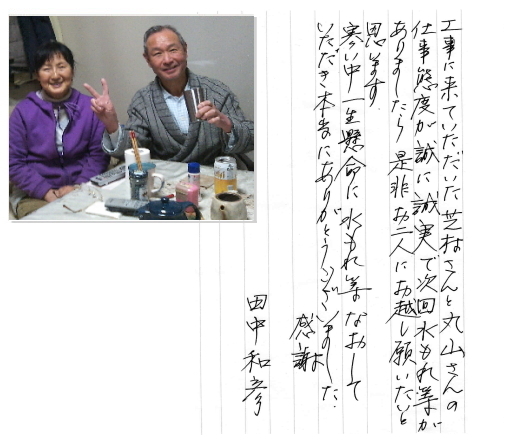 工事に来ていただいた芝村さんと丸山さんの
仕事態度が誠に誠実で次回水もれ等が
ありましたら是非お二人にお越し願いたいと
思います。
寒い中一生懸命に水もれ等なおして
いただき本当にありがとうございました。
感謝
田中和彦